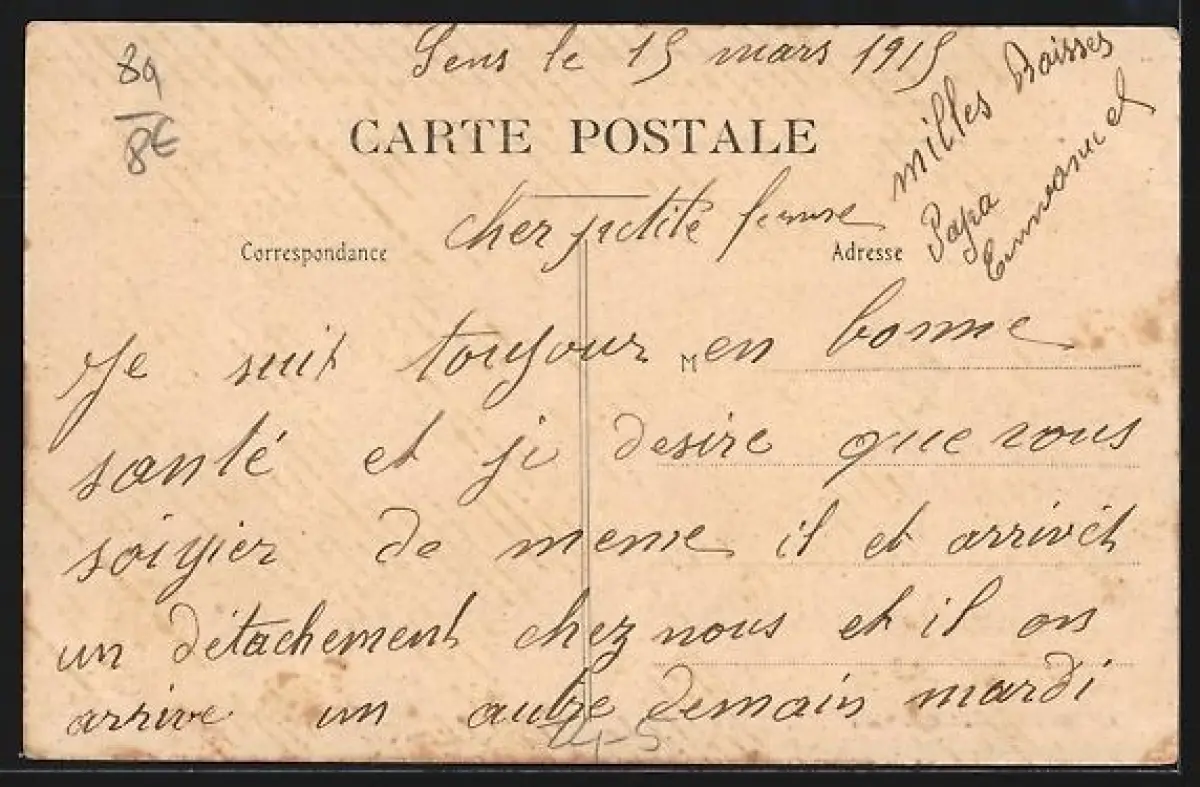 89
8€
Sens le 15 mars 1915
CARTE POSTALE
milles Baisses
Papa
Emmanuel
cher petite femme
Correspondance
Adresse
Je suit toujour en bonne
M
santé et je desire que vous
soigier de meme il et arrivét
un détachement chez nous et il on
arrive un autre demain mardi